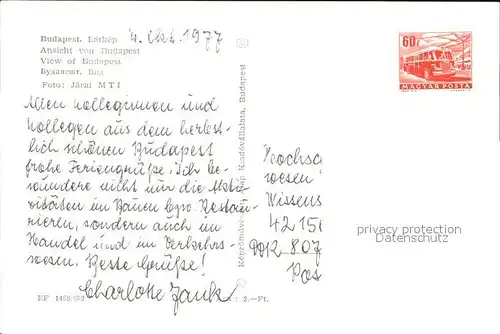 Budapest. Látkép
4. Okt. 1977
Ansicht von Budapest
View of Budapest
Будапешт. Вид
Foto: Járai MTI
60f
MAGYAR POSTA
Allen Kolleginnen und
Kollegen aus dem herbst-
lich schönen Budapest
frohe Feriengrüße. Ich be-
wundere nicht nur die Akti-
vitäten im Bauen bzw. Restau-
rieren, sondern auch im
Handel und im Verkehrs-
wesen. Beste Grüße!
Charlotte
Képzőművészeti Alap Kiadóvállalata, Budapest
Hochsc
wesen
Wissens
4215
807
Pos
privacy protection
Datenschutz
2.-Ft.